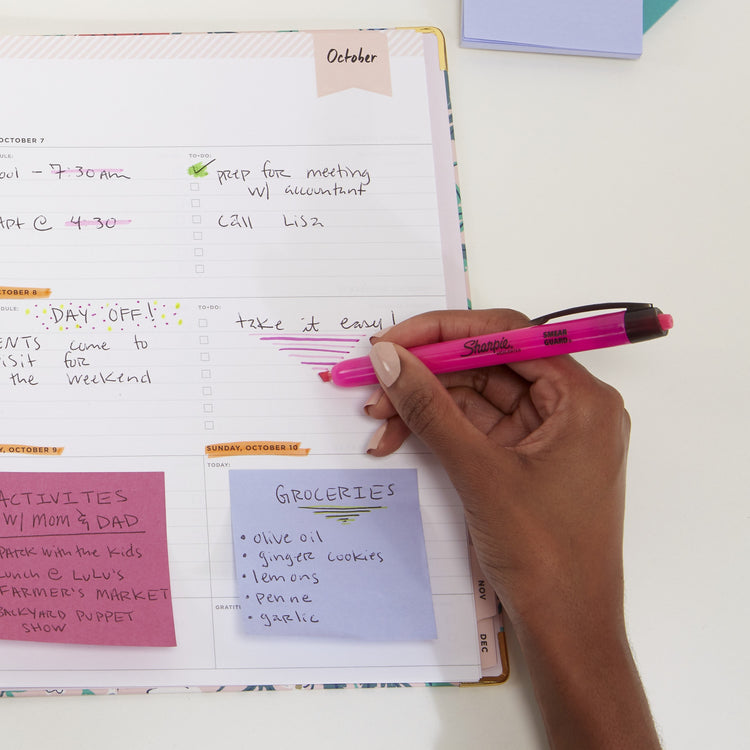 October
OCTOBER 7
TO-DO:
7:30 AM
prep for meeting
w/ accountant
@ 4:30
Call Lisa
OCTOBER 8
TO-DO:
DAY OFF!
take it easy!
come to
for
the weekend
Sharpie
SMEAR
GUARD
OCTOBER 9
SUNDAY, OCTOBER 10
TODAY:
ACTIVITES
W/ MOM & DAD
PARK with the KidS
Lunch @ LuLu's
FARMER'S MARKET
BACKYARD PUPPET
SHOW
GROCERIES
• olive oil
• ginger cookies
• lemons
• penne
• garlic
NOV
DEC